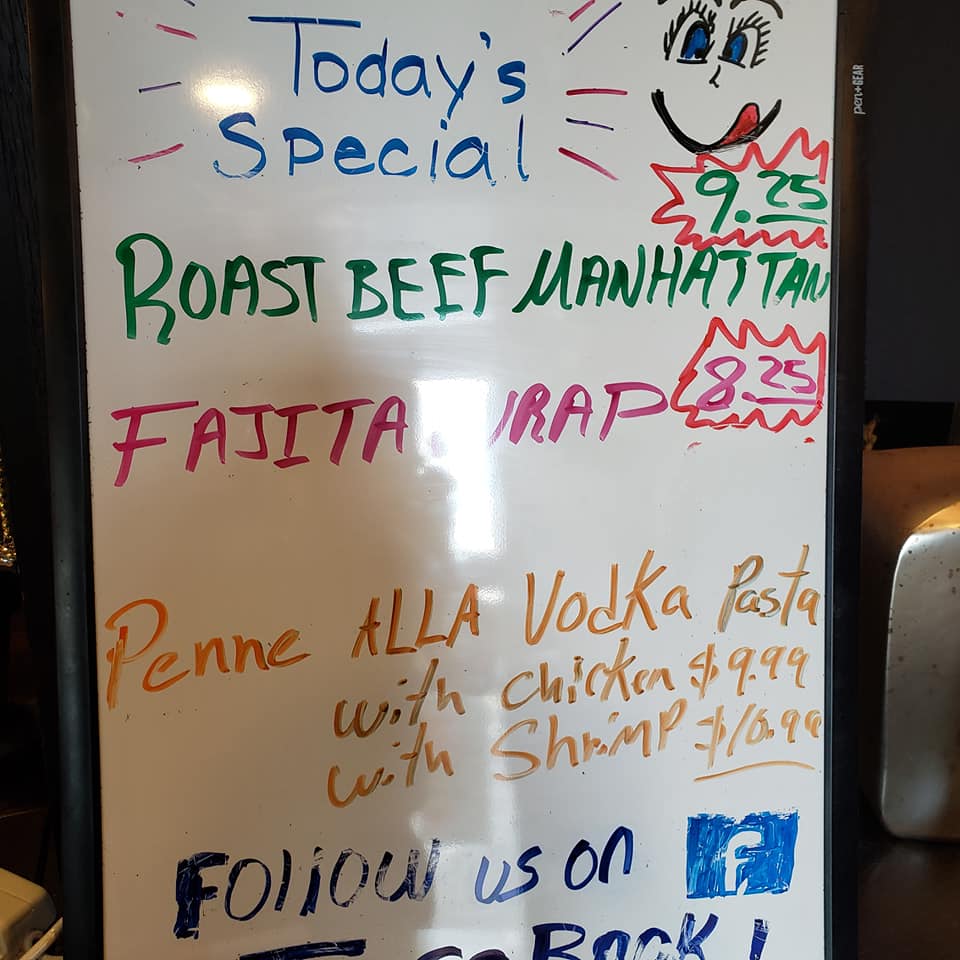 Today's
Special
pen+GEAR
9.25
ROAST BEEF MANHATTAN
8.25
FAJITA WRAP
Penne ALLA Vodka Pasta
with chicken $9.99
with Shrimp $10.99
Follow us on f
BOOK!